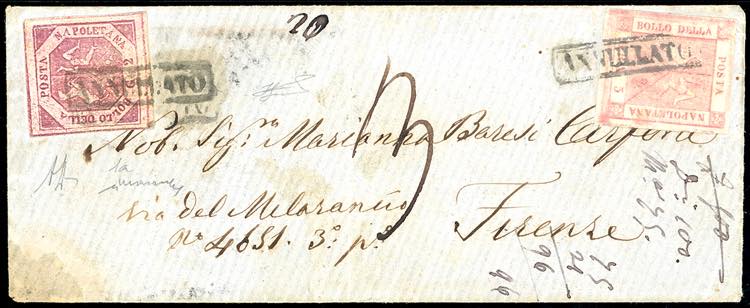 20
POSTA NAPOLETANA
BOLLO DELLA
G. 2
ANNULLATO
BOLLO DELLA
POSTA
NAPOLETANA
ANNULLATO
3
Nob. Sig.ra Marianna Baresi Carfora
via del Melarancio
No 4651. 3o. po.
Firenze
75
21
96